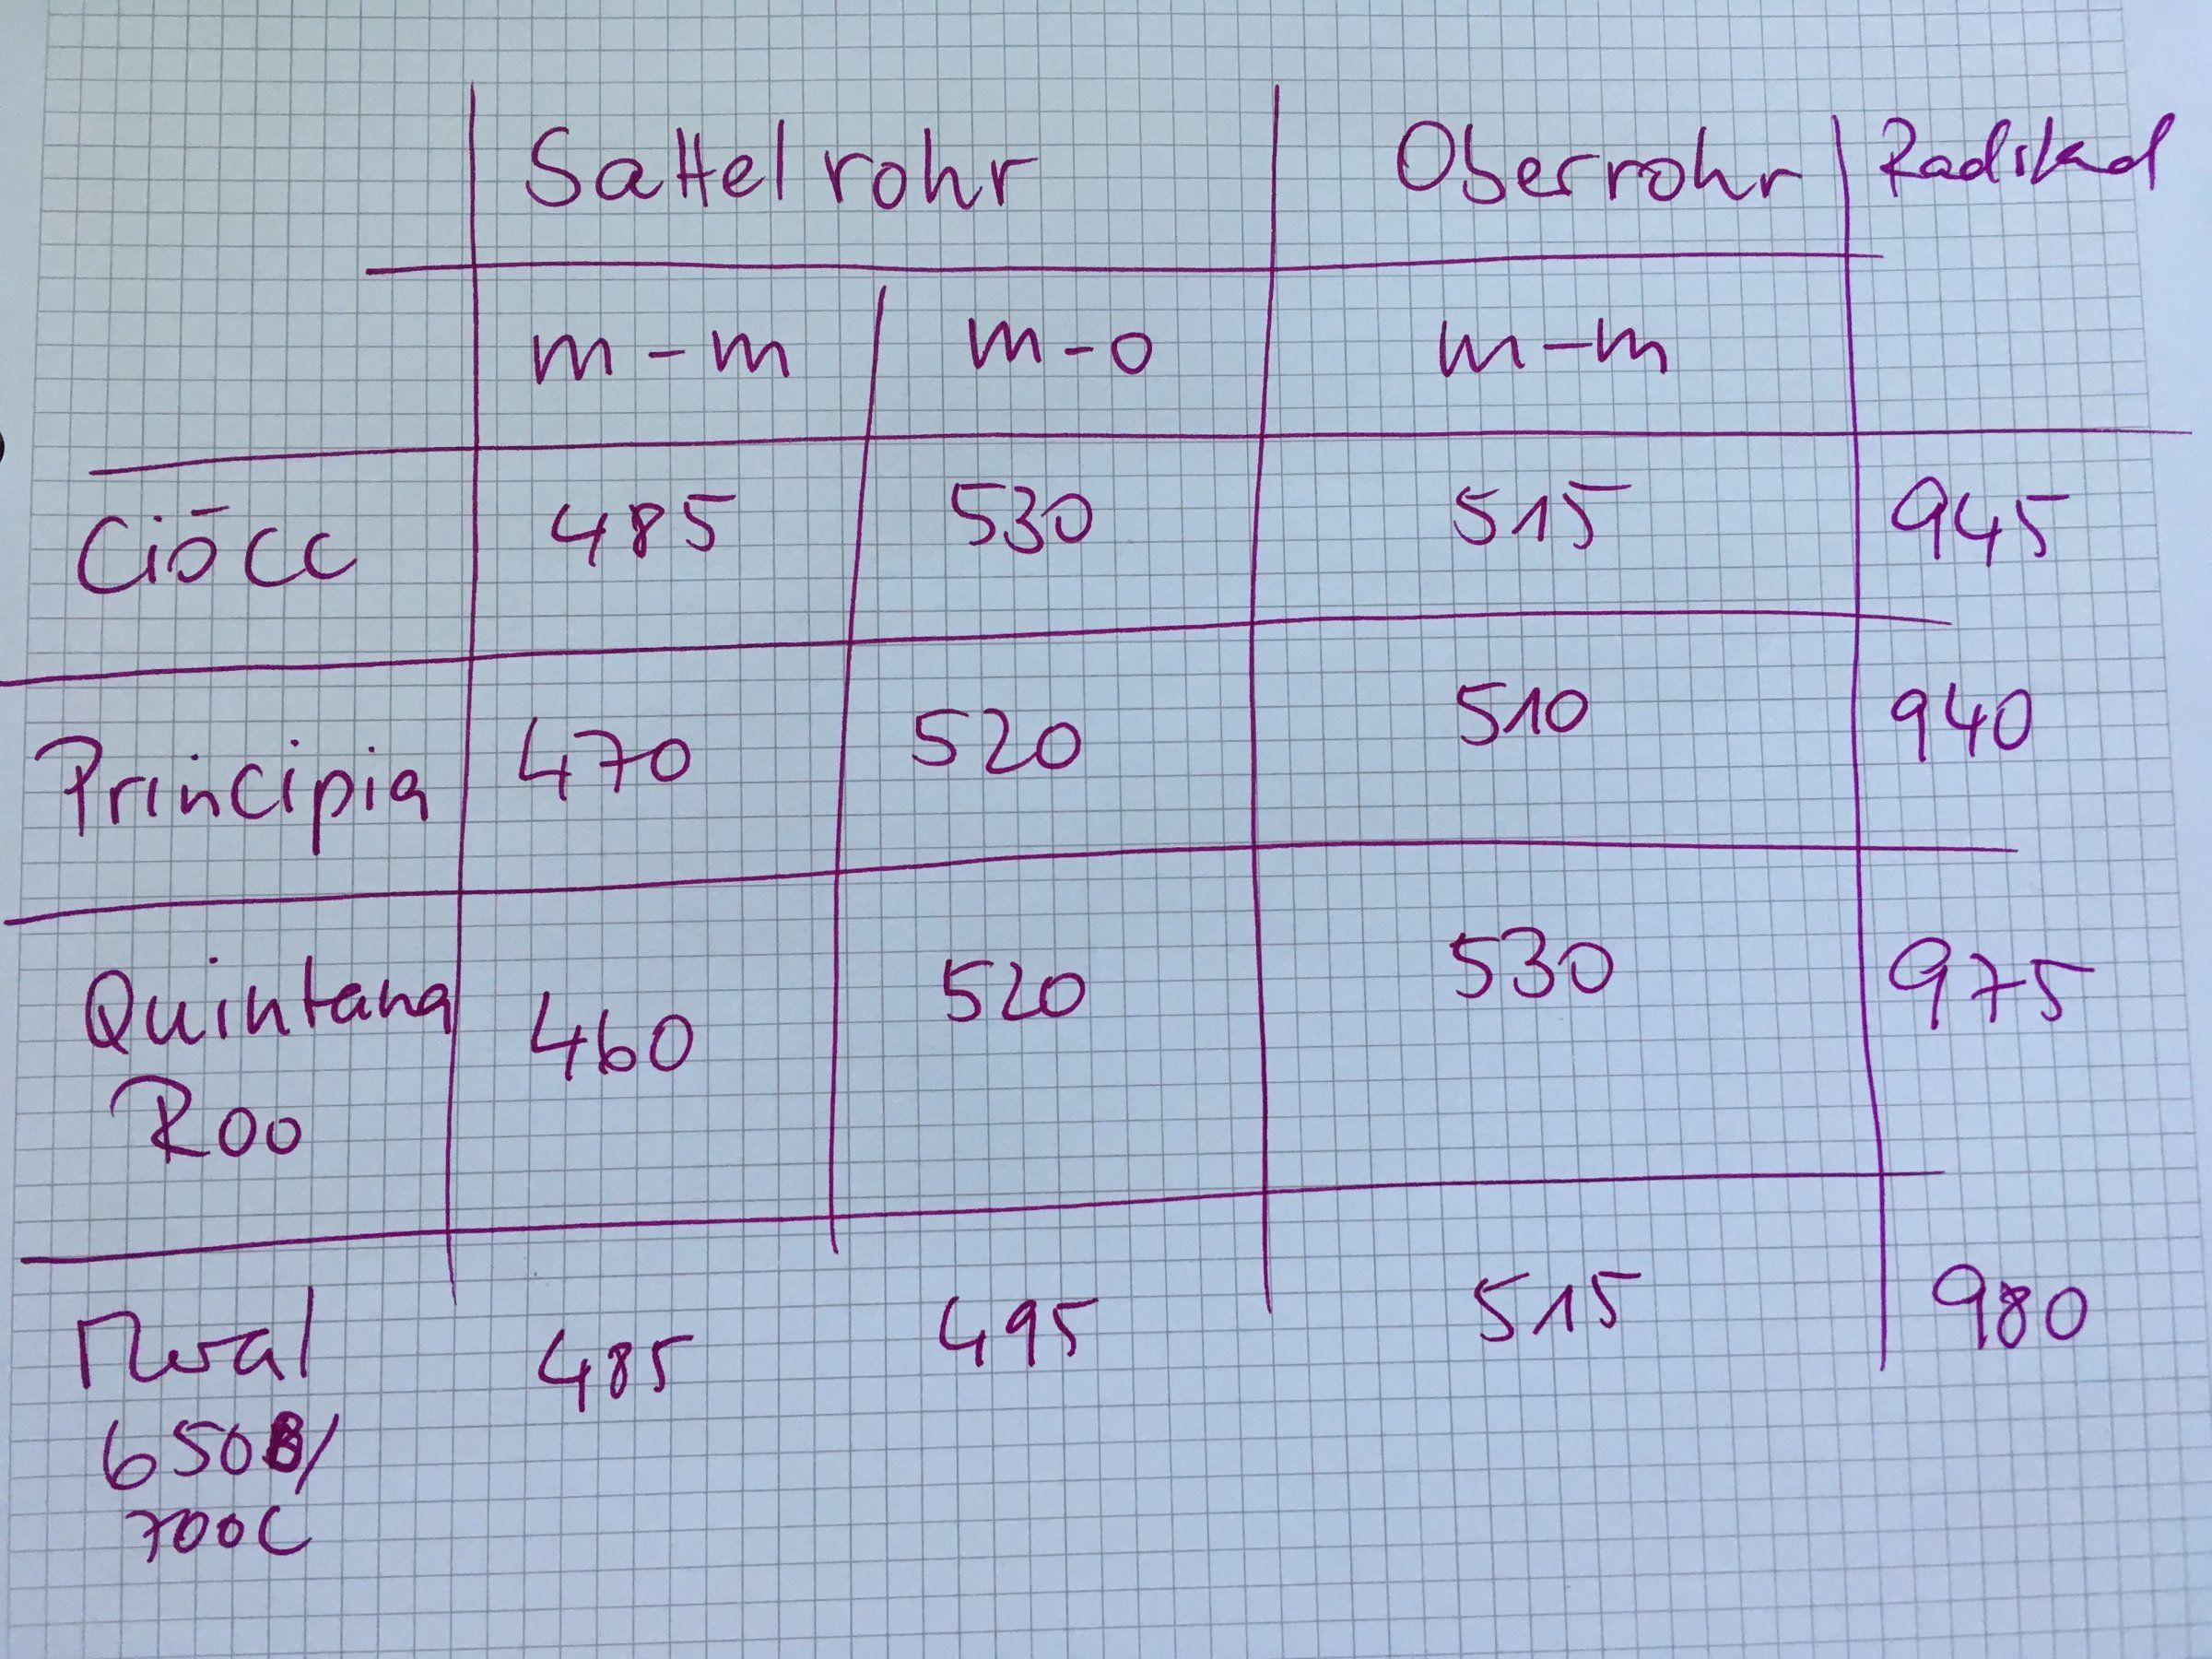 Sattelrohr Oberrohr Radstand
m-m m-o m-m
Ciöcc 485 530 515 945
Principia 470 520 510 940
Quintana 460 520 530 975
Roo
485 495 515 980
650B/
700C